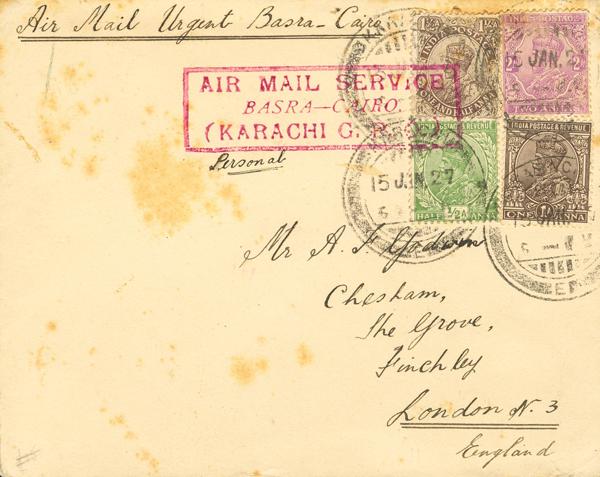 Air Mail Urgent Basra-Cairo
AIR MAIL SERVICE
BASRA—CAIRO.
(KARACHI G.P.O.)
Personal
INDIA POSTAGE
INDIA POSTAGE
INDIA POSTAGE & REVENUE
HALF ½A ANNA
INDIA POSTAGE & REVENUE
ONE 1A ANNA
15 JAN. 27
15 JAN. 27
Mr A. F. Godwin
Chesham,
The Grove,
Finchley
London N. 3
England